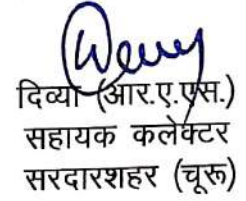 दिव्या (आर.ए.एस.)
सहायक कलेक्टर
सरदारशहर (चूरू)